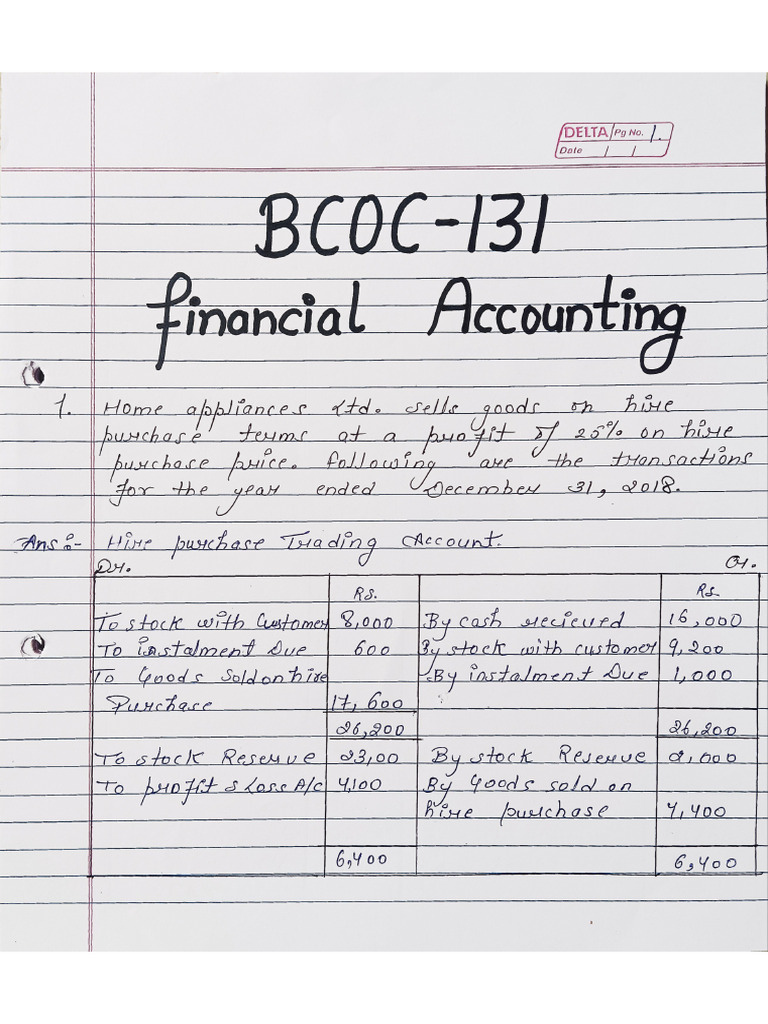 DELTA Pg No. 1.
Date / /
BCOC-131
financial Accounting
1. Home appliances Ltd. sells goods on hire
purchase terms at a profit of 25% on hire
purchase price. following are the transactions
for the year ended December 31, 2018.
Ans:- Hire purchase Trading Account.
Dr. Cr.
Rs. Rs.
To stock with Customer 8,000 By cash recieved 16,000
To instalment Due 600 By stock with customer 9,200
To Goods Sold on hire By instalment Due 1,000
Purchase 17,600
26,200 26,200
To stock Reserve 23,00 By stock Reserve 2,000
To profit & Loss A/c 4,100 By Goods sold on
hire purchase 4,400
6,400 6,400